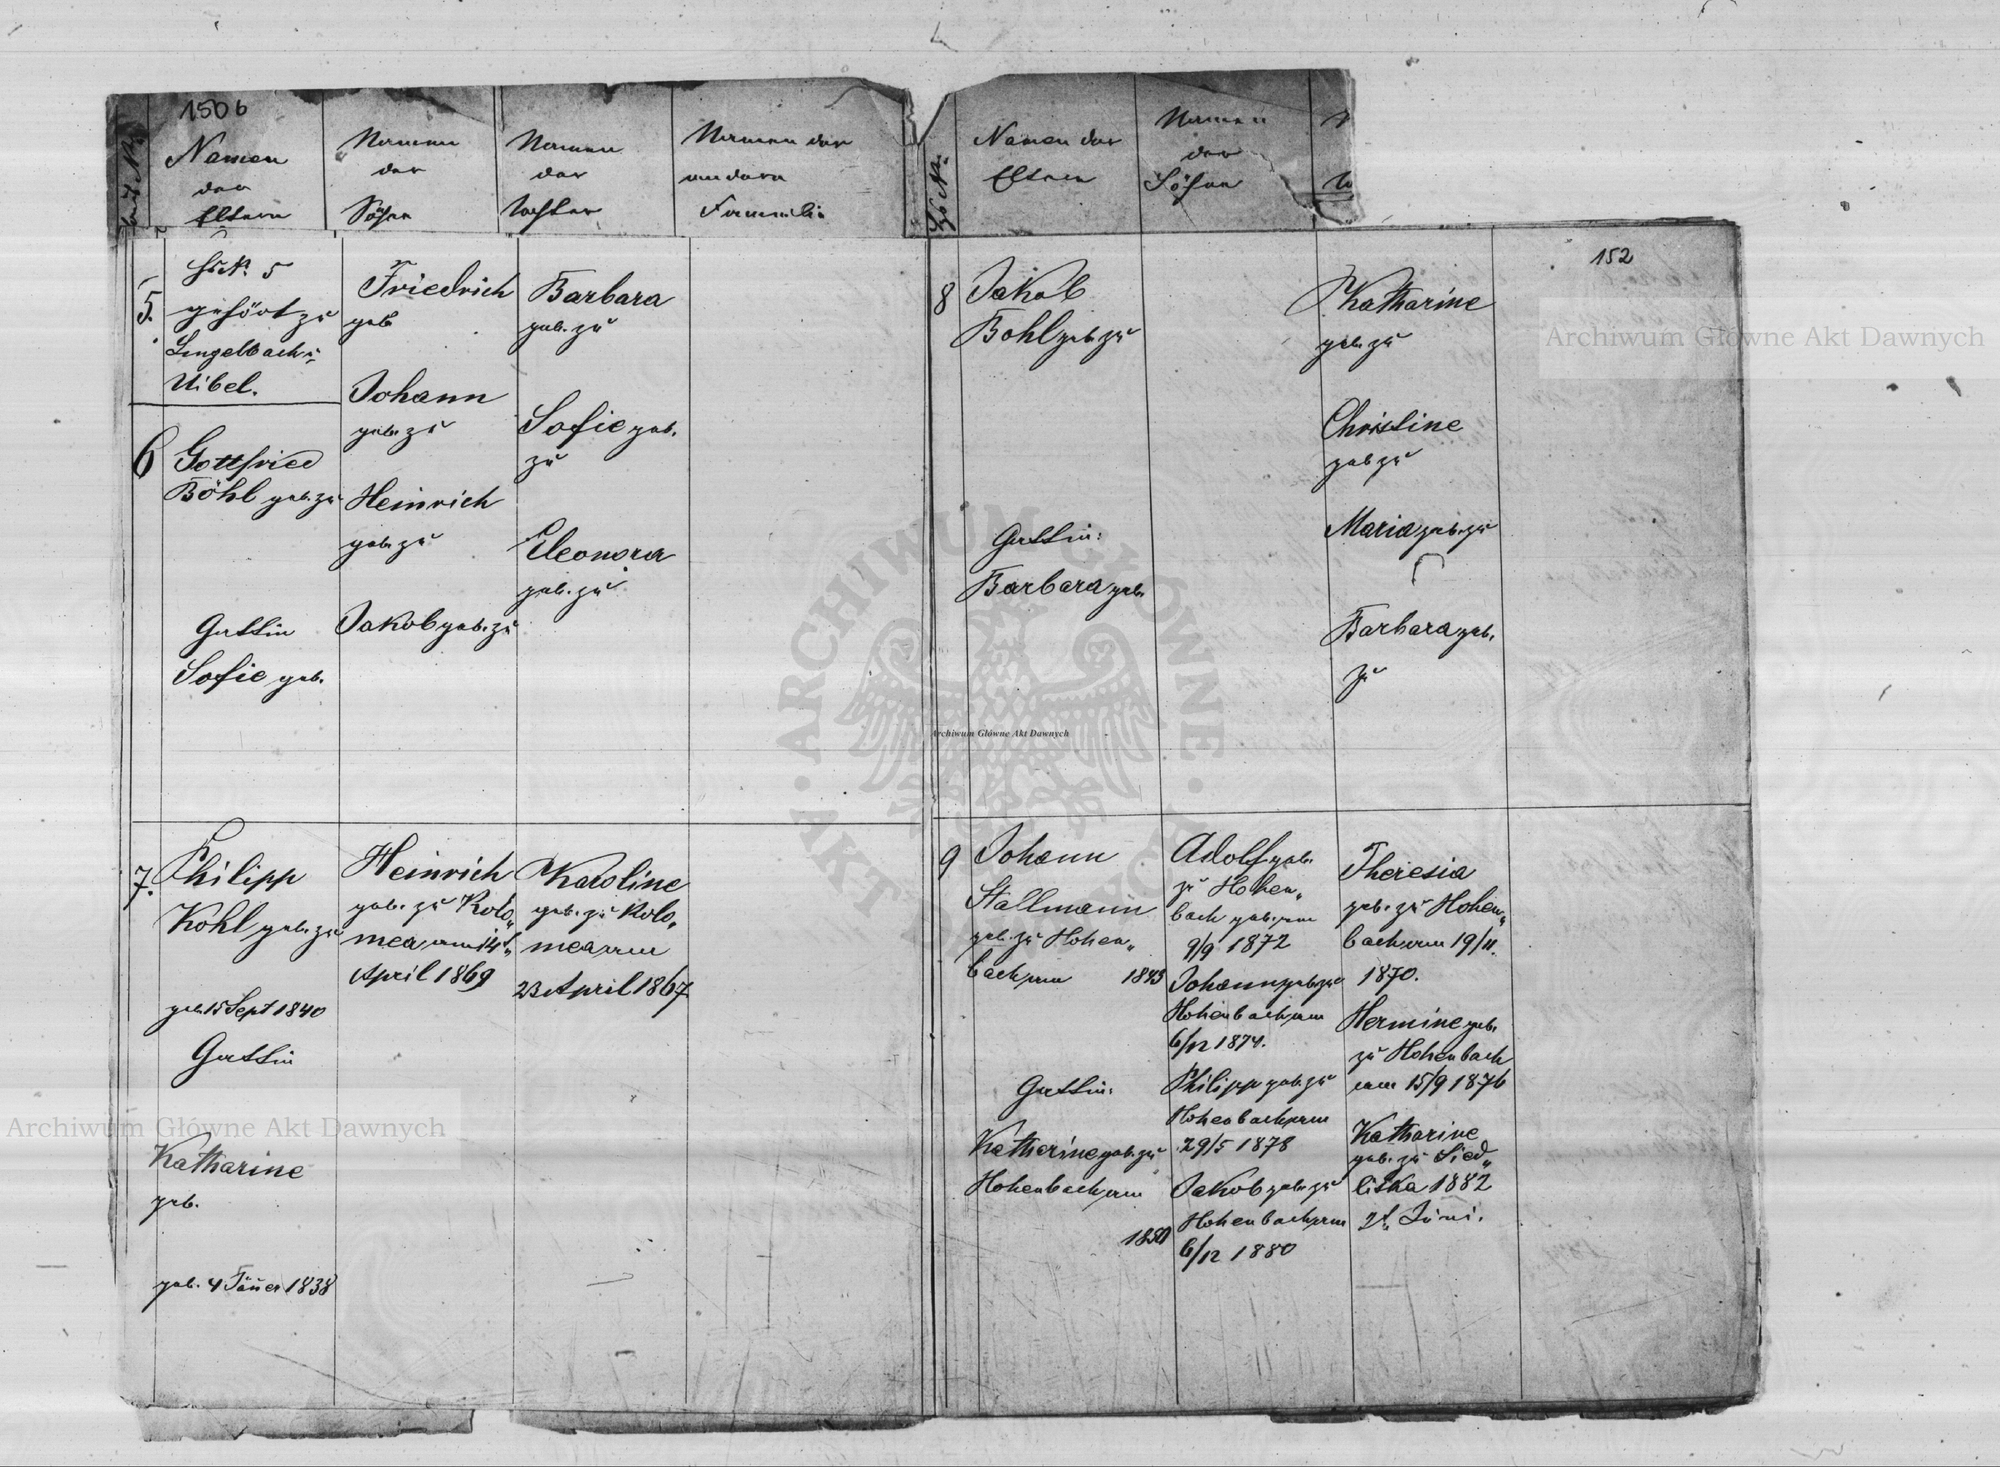 1506
Namen
der
Eltern
Namen
der
Söhne
Namen
der
Töchter
Namen der
andern
Familie
5.
HsN. 5
gehört zu
Lengelbach u
Uibel.
6
Gottfried
Böhl geb. zu
Gattin
Sofie geb.
Friedrich
geb
Johann
geb. zu
Heinrich
geb. zu
Jakob geb. zu
Barbara
geb. zu
Sofie geb.
zu
Eleonora
geb. zu
7.
Philipp
Kohl geb. zu
geb. 15 Sept 1840
Gattin
Katharine
geb.
geb. 4 Jäner 1838
Heinrich
geb. zu Kolo„
mea am 14t
April 1869
Karoline
geb. zu Kolo„
mea am
23 April 1867
Namen der
Eltern
Namen
der
Söhne
152
8
Jakob
Bohl geb. zu
Gattin:
Barbara geb.
Katharine
geb. zu
Christine
geb zu
Maria geb. zu
Barbara geb.
zu
9
Johann
Stallmann
geb. zu Hohen„
bach am 1843
Gattin:
Katherine geb. zu
Hohenbach am
1850
Adolf geb.
zu Hohen„
bach geb. am
9/9 1872
Johann geb. zu
Hohenbach am
6/12 1874.
Philipp geb. zu
Hohenbach am
29/5 1878
Jakob geb. zu
Hohenbach am
6/12 1880
Theresia
geb. zu Hohen„
bach am 19/11.
1870.
Hermine geb.
zu Hohenbach
am 15/9 1876
Katharine
geb. zu Sied„
liska 1882
2t. Juni.
Archiwum Główne Akt Dawnych
Archiwum Główne Akt Dawnych
Archiwum Główne Akt Dawnych
ARCHIWUM GŁÓWNE AKT DAWNYCH